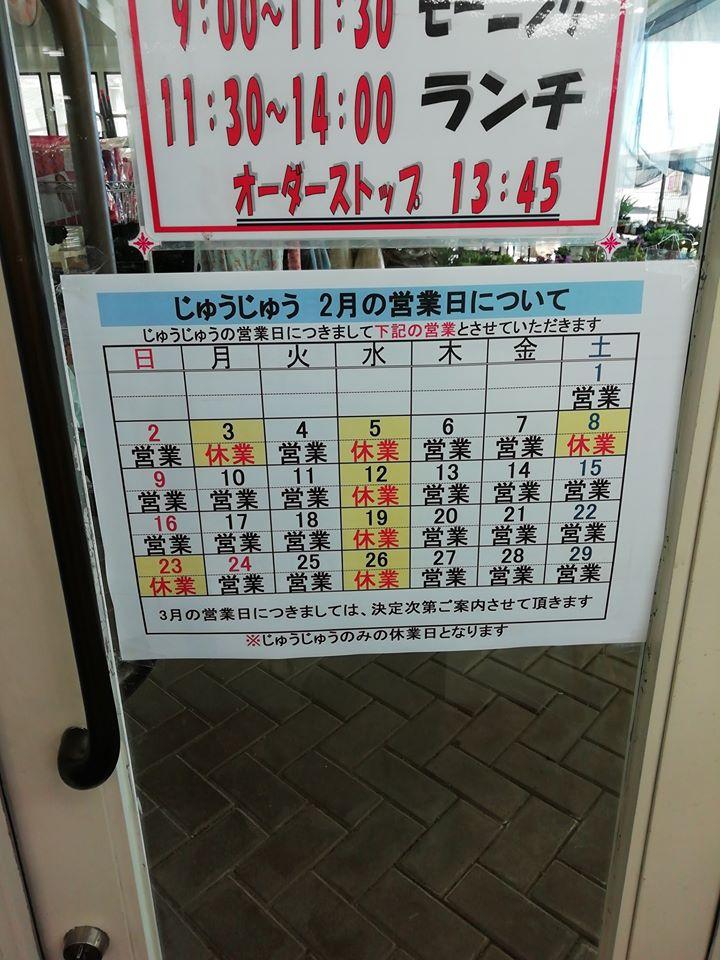 9:00~11:30 モーニング
11:30~14:00 ランチ
オーダーストップ 13:45
じゅうじゅう 2月の営業日について
じゅうじゅうの営業日につきまして下記の営業とさせていただきます
日 月 火 水 木 金 土
1
営業
2 3 4 5 6 7 8
営業 休業 営業 休業 営業 営業 休業
9 10 11 12 13 14 15
営業 営業 営業 休業 営業 営業 営業
16 17 18 19 20 21 22
営業 営業 営業 休業 営業 営業 営業
23 24 25 26 27 28 29
休業 営業 営業 休業 営業 営業 営業
3月の営業日につきましては、決定次第ご案内させて頂きます
※じゅうじゅうのみの休業日となります